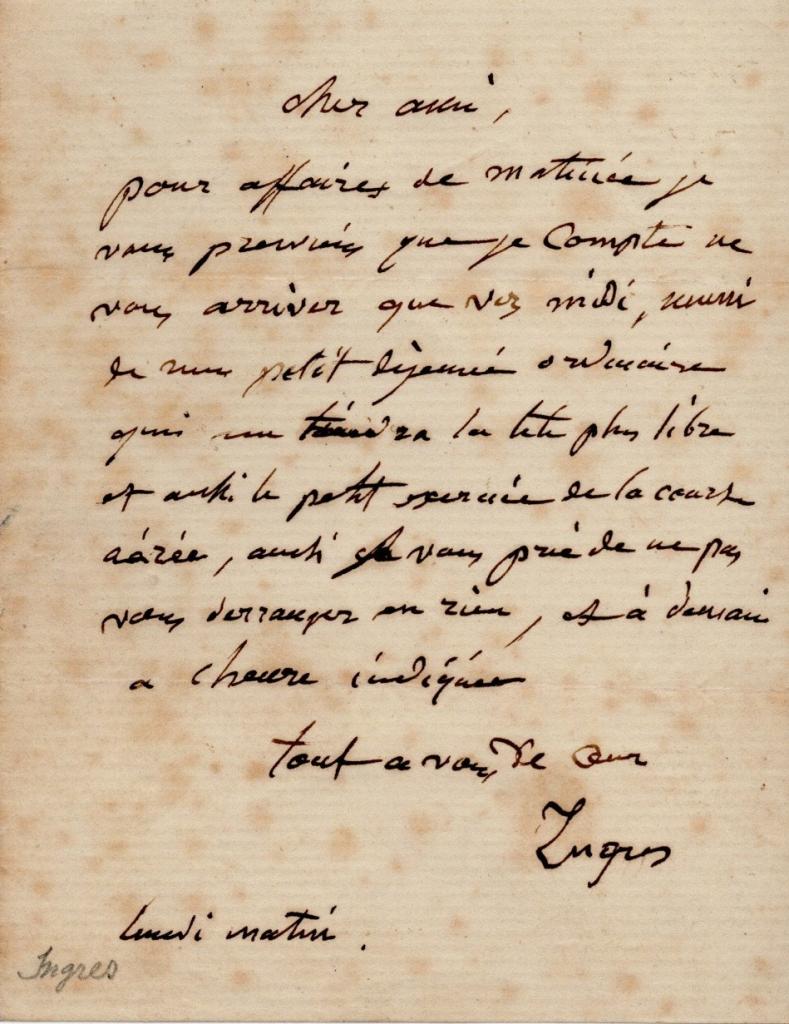 cher ami,
pour affaires de matinée je
vous previens que je compte ne
vous arriver que vers midi, muni
de mon petit dejeuné ordinaire
qui me tiendra la tete plus libre
et aussi le petit exercice de la course
aérée, aussi je vous prie de ne pas
vous derranger en rien, et à demain
a l'heure indiquée
tout a vous de Cœur
Ingres
lundi matin.
Ingres